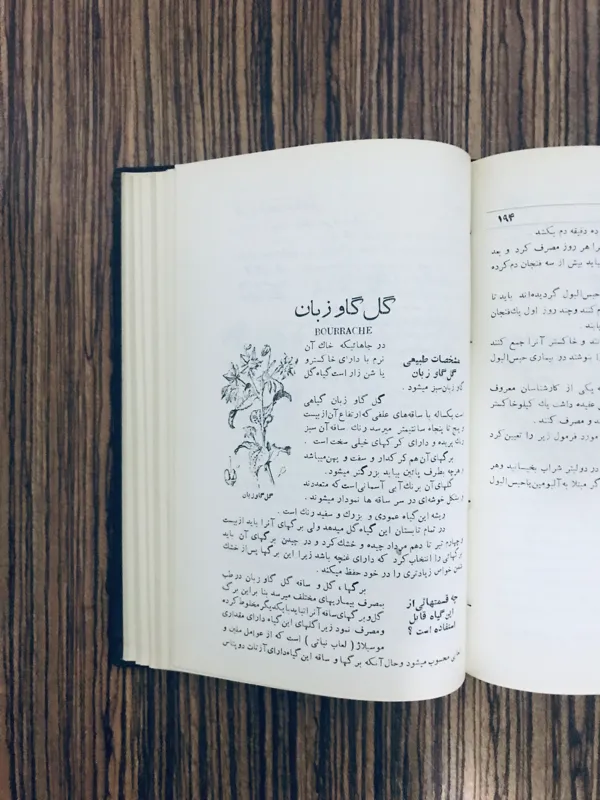 ۱۹۴
ده دقیقه دم بکشد
را هر روز مصرف کرد و بعد
باید بیش از سه فنجان دم کرده
حبس‌البول گردیده‌اند باید تا
کنند و چند روز اول یك فنجان
و خاکستر آنرا جمع کنند
بنوشند در بیماری حبس‌البول
یکی از کارشناسان معروف
عقیده داشت یك کیلو خاکستر
و مصرف کنند .
مورد فرمول زیر را تعیین کرد
در دولیتر شراب بخیسانید وهر
مبتلا به آلبومین یا حبس‌البول
گل گاو زبان
BOURRACHE
مشخصات طبیعی
گل گاو زبان
در جاهائیکه خاك آن
نرم یا دارای خاکستر و
یا شن زار است گیاه گل
گاو زبان سبز میشود .
گل گاو زبان گیاهی
است یکساله با ساقه‌های علفی که ارتفاع آن از بیست
و پنج تا پنجاه سانتیمتر میرسد و رنك ساقه آن سبز
رنك پریده و دارای کرکهای خیلی سخت است .
برگهای آن هم کرکدار و سفت و پهن میباشد
و هرچه بطرف پائین بیاید بزرگتر میشود .
گلهای آن برنك آبی آسمانی است که متعددند
و بشکل خوشه‌ای در سر ساقه ها نمودار میشوند .
ریشه این گیاه عمودی و بزرك و سفید رنك است .
در تمام تابستان این گیاه گل میدهد ولی برگهای آنرا باید از بیست
و چهارم تیر تا دهم مرداد چیده و خشك کرد و در چیدن برگهای آن باید
برگهائی را انتخاب کرد که دارای غنچه باشد زیرا این برگها پس از خشك
شدن خواص زیادتری را در خود حفظ میکند .
گل گاو زبان
چه قسمتهائی از
این گیاه قابل
استفاده است ؟
برگها ، گل و ساقه گل گاو زبان در طب
بمصرف بیماریهای مختلف میرسد بنا بر این برگ
گل و برگهای ساقه آنرا نباید با یکدیگر مخلوط کرده
و مصرف نمود زیرا گلهای این گیاه دارای مقداری
موسیلاژ ( لعاب نباتی ) است که از عوامل ملین و
محسوب میشود و حال آنکه برگها و ساقه این گیاه دارای ازتات دوپتاس